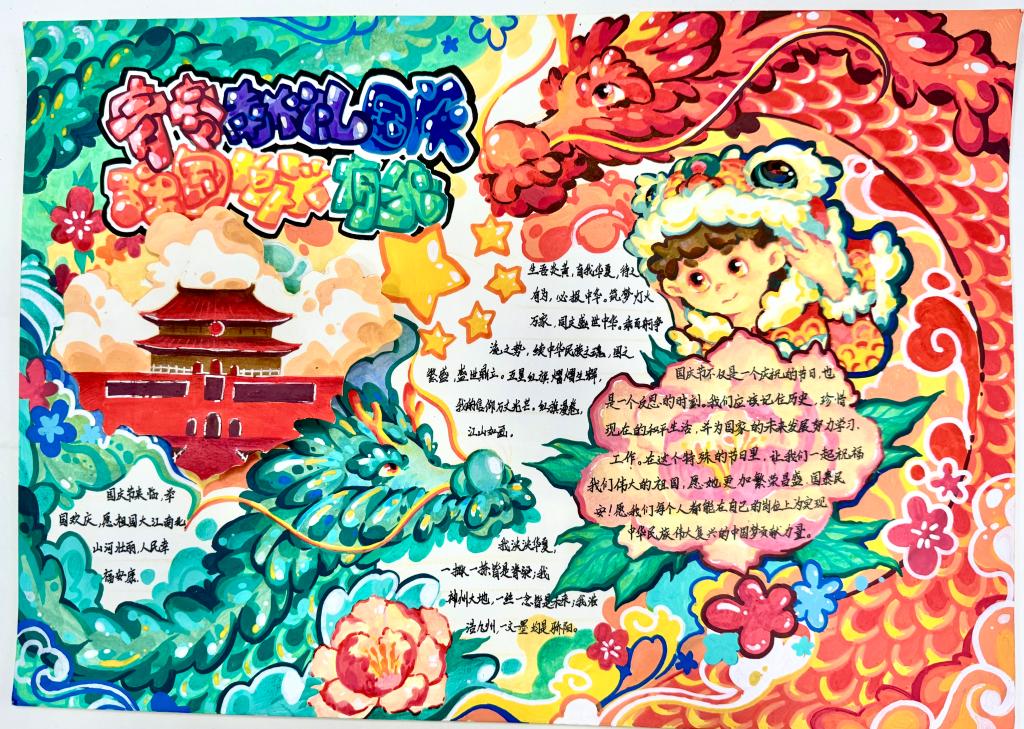 献礼国庆
国有我
生吾炎黄,育我华夏,待之
有为,必报中华。筑梦灯火
万家,国定盛世中华。乘百舸争
流之势,续中华民族之魂,国之
繁盛,盛世鼎立。五星红旗熠熠生辉,
我的信仰万丈光芒。红旗漫卷,
江山如画。
国庆节不仅是一个庆祝的节日,也
是一个反思的时刻。我们应该记住历史,珍惜
现在的和平生活,并为国家的未来发展努力学习、
工作。在这个特殊的节日里,让我们一起祝福
我们伟大的祖国,愿她更加繁荣昌盛,国泰民
安!愿我们每个人都能在自己的岗位上为实现
中华民族伟大复兴的中国梦贡献力量。
国庆节来临,举
国欢庆,愿祖国大江南北,
山河壮丽,人民幸
福安康。
我泱泱华夏,
一撇一捺皆是脊梁;我
神州大地,一丝一念皆是未来;我浩
浩九州,一文一墨均是骄阳。